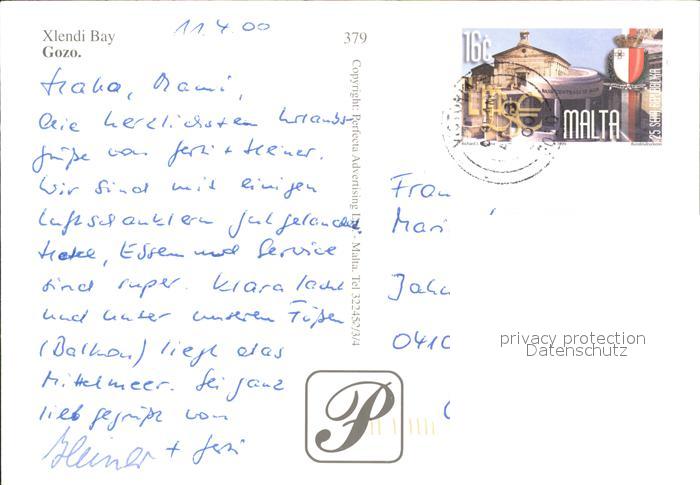 11.4.00
Xlendi Bay
Gozo.
379
Mami,
die herzlichsten Urlaubs-
grüße von Gerti + Heiner.
Wir sind mit einigen
Luftschauklern gut gelandet.
Hotel, Essen und Service
sind super. Klara lacht
und unter unseren Füßen
(Balkon) liegt das
Mittelmeer. Sei ganz
lieb gegrüßt von
Heiner + Gerti
Copyright: Perfecta Advertising Ltd - Malta. Tel 322452/3/4
P
16c
MALTA
25 SENA REPUBBLIKA
Frau
Mari
Jahn
0410
privacy protection
Datenschutz